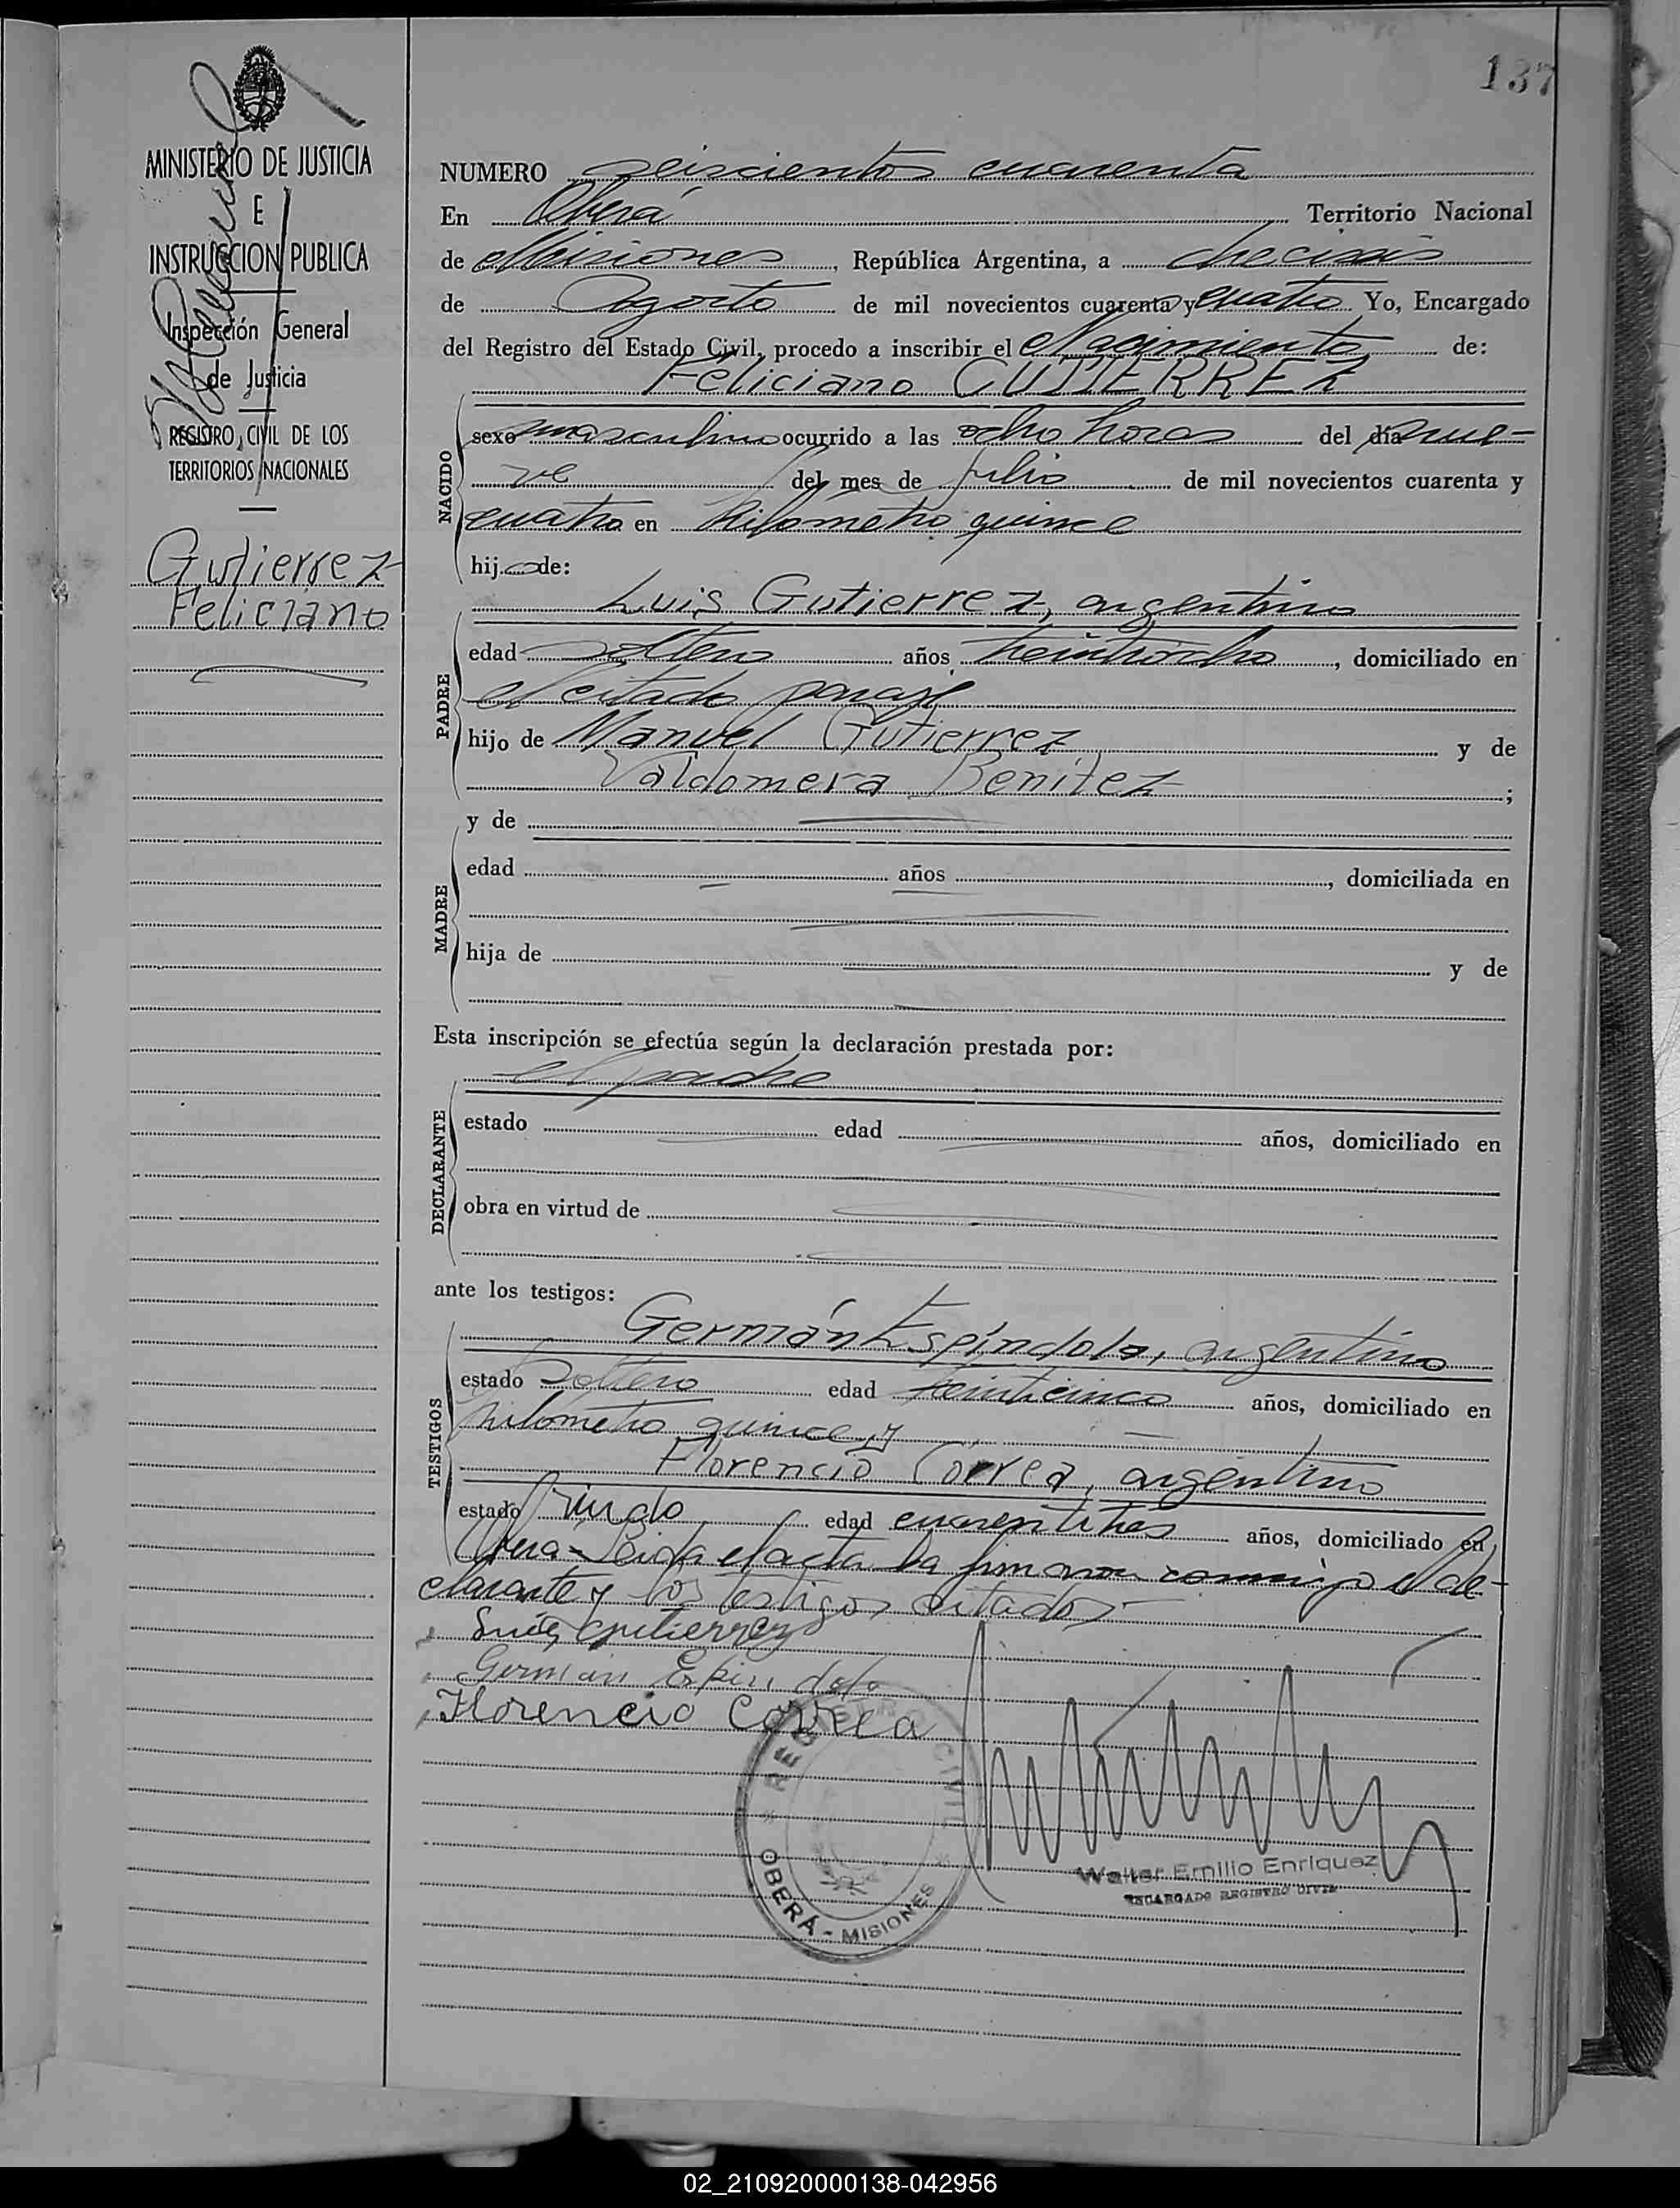 137
MINISTERIO DE JUSTICIA
E
INSTRUCCION PUBLICA
Inspección General
de Justicia
REGISTRO CIVIL DE LOS
TERRITORIOS NACIONALES
Gutierrez
Feliciano
NUMERO seiscientos cuarenta
En Oberá Territorio Nacional
de Misiones, República Argentina, a dieciseis
de Agosto de mil novecientos cuarenta y cuatro Yo, Encargado
del Registro del Estado Civil, procedo a inscribir el Nacimiento de:
Feliciano GUTIERREZ
NACIDO
sexo masculino ocurrido a las ocho horas del día nue-
ve del mes de julio de mil novecientos cuarenta y
cuatro en kilometro quince
hijo de:
Luis Gutierrez, argentino
PADRE
edad soltero años treintiocho, domiciliado en
el citado paraje
hijo de Manuel Gutierrez y de
Valdomera Benitez;
y de
MADRE
edad años, domiciliada en
hija de y de
Esta inscripción se efectúa según la declaración prestada por:
el padre
DECLARANTE
estado edad años, domiciliado en
obra en virtud de
ante los testigos:
Germán Espíndola, argentino
TESTIGOS
estado Soltero edad veinticinco años, domiciliado en
kilometro quince y
Florencio Correa, argentino
estado viudo edad cuarentitres años, domiciliado en
Obera - Leida el acta la firmaron conmigo el de-
clarante y los testigos citados
Luis Gutierrez
German Espindola
Florencio Correa
REGISTRO CIVIL
OBERÁ - MISIONES
Walter Emilio Enriquez
ENCARGADO REGISTRO CIVIL
02_210920000138-042956